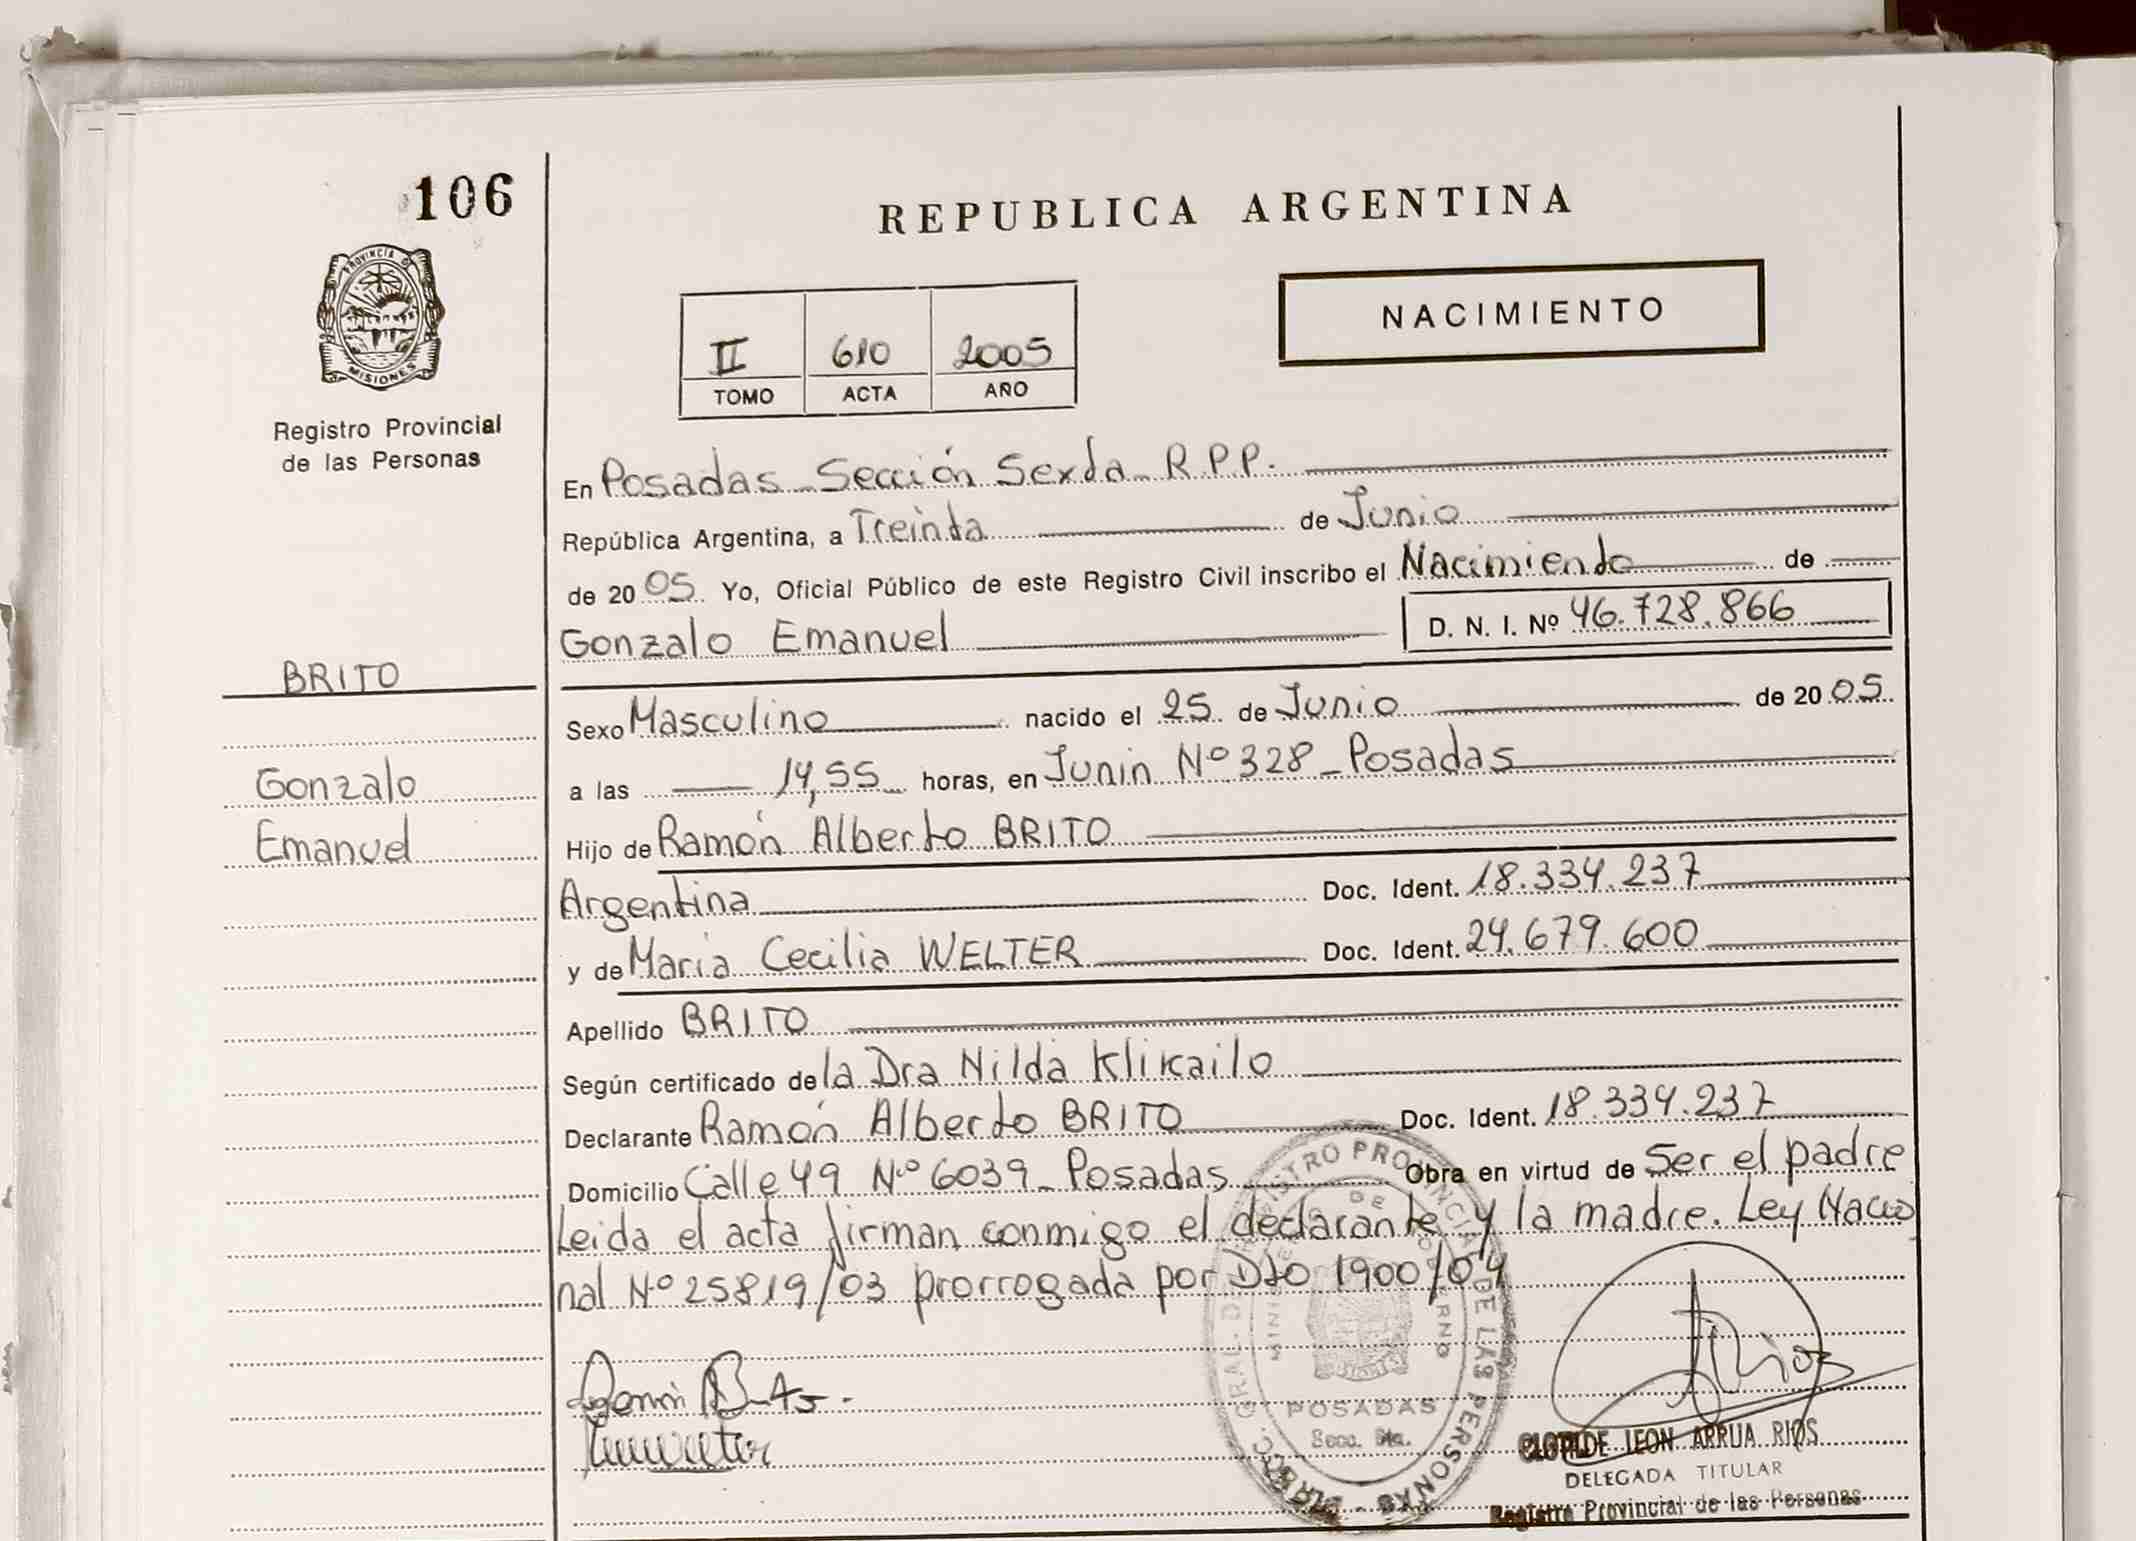 106
REPUBLICA ARGENTINA
PROVINCIA DE
MISIONES
Registro Provincial
de las Personas
NACIMIENTO
II 610 2005
TOMO ACTA AÑO
En Posadas - Sección Sexta - R.P.P.
República Argentina, a Treinta de Junio
de 2005. Yo, Oficial Público de este Registro Civil inscribo el Nacimiento de
Gonzalo Emanuel D. N. I. Nº 46.728.866
BRITO
Gonzalo
Emanuel
Sexo Masculino nacido el 25 de Junio de 2005.
a las 14,55 horas, en Junin Nº 328 - Posadas
Hijo de Ramón Alberto BRITO
Argentina Doc. Ident. 18.334.237
y de Maria Cecilia WELTER Doc. Ident. 24.679.600
Apellido BRITO
Según certificado de la Dra Nilda Klikailo
Declarante Ramón Alberto BRITO Doc. Ident. 18.334.237
Domicilio Calle 49 Nº 6039 - Posadas Obra en virtud de Ser el padre
Leida el acta firman conmigo el declarante y la madre. Ley Nacio
nal Nº 25819/03 prorrogada por Dto 1900/04
REGISTRO PROVINCIAL DE LAS PERSONAS
POSADAS
Secc. 6ta.
CLOTILDE LEON ARRUA RIOS
DELEGADA TITULAR
Registro Provincial de las Personas